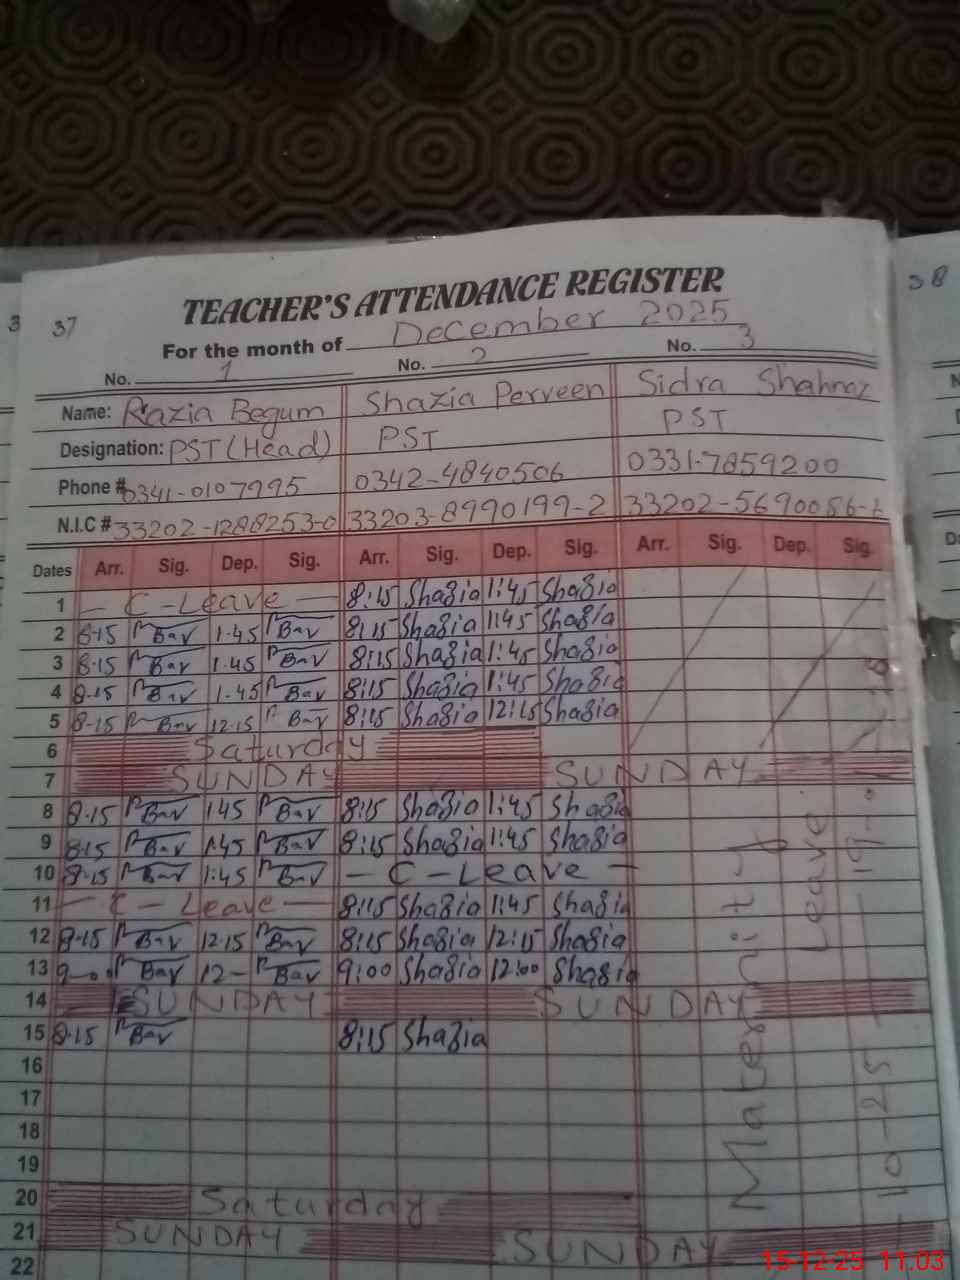 3 37 38
TEACHER'S ATTENDANCE REGISTER
For the month of December 2025
No. 1 No. 2 No. 3
Name: Razia Begum Shazia Perveen Sidra Shahnaz
Designation: PST (Head) PST PST
Phone # 0341-0107995 0342-4840506 0331-7859200
N.I.C # 33202-1288253-0 33203-8990199-2 33202-5690056-
Dates Arr. Sig. Dep. Sig. Arr. Sig. Dep. Sig. Arr. Sig. Dep. Sig.
1 - C-Leave - 8:15 Shazia 1:45 Shazia
2 8-15 1-45 8:15 Shazia 1:45 Shazia
3 8-15 1-45 8:15 Shazia 1:45 Shazia
4 8-15 1-45 8:15 Shazia 1:45 Shazia
5 8-15 12-15 8:15 Shazia 12:15 Shazia
6 Saturday
7 SUNDAY SUNDAY
8 8-15 145 8:15 Shazia 1:45 Shazia
9 8-15 1-45 8:15 Shazia 1:45 Shazia
10 8-15 1:45 - C-Leave -
11 - C-Leave - 8:15 Shazia 1:45 Shazia
12 8-15 12-15 8:15 Shazia 12:15 Shazia
13 12- 9:00 Shazia 12:00 Shazia
14 SUNDAY SUNDAY
15 8-15 8:15 Shazia
16
17
18
19
20 Saturday
21 SUNDAY SUNDAY
22
Maternity
Leave
15-12-25 11.03